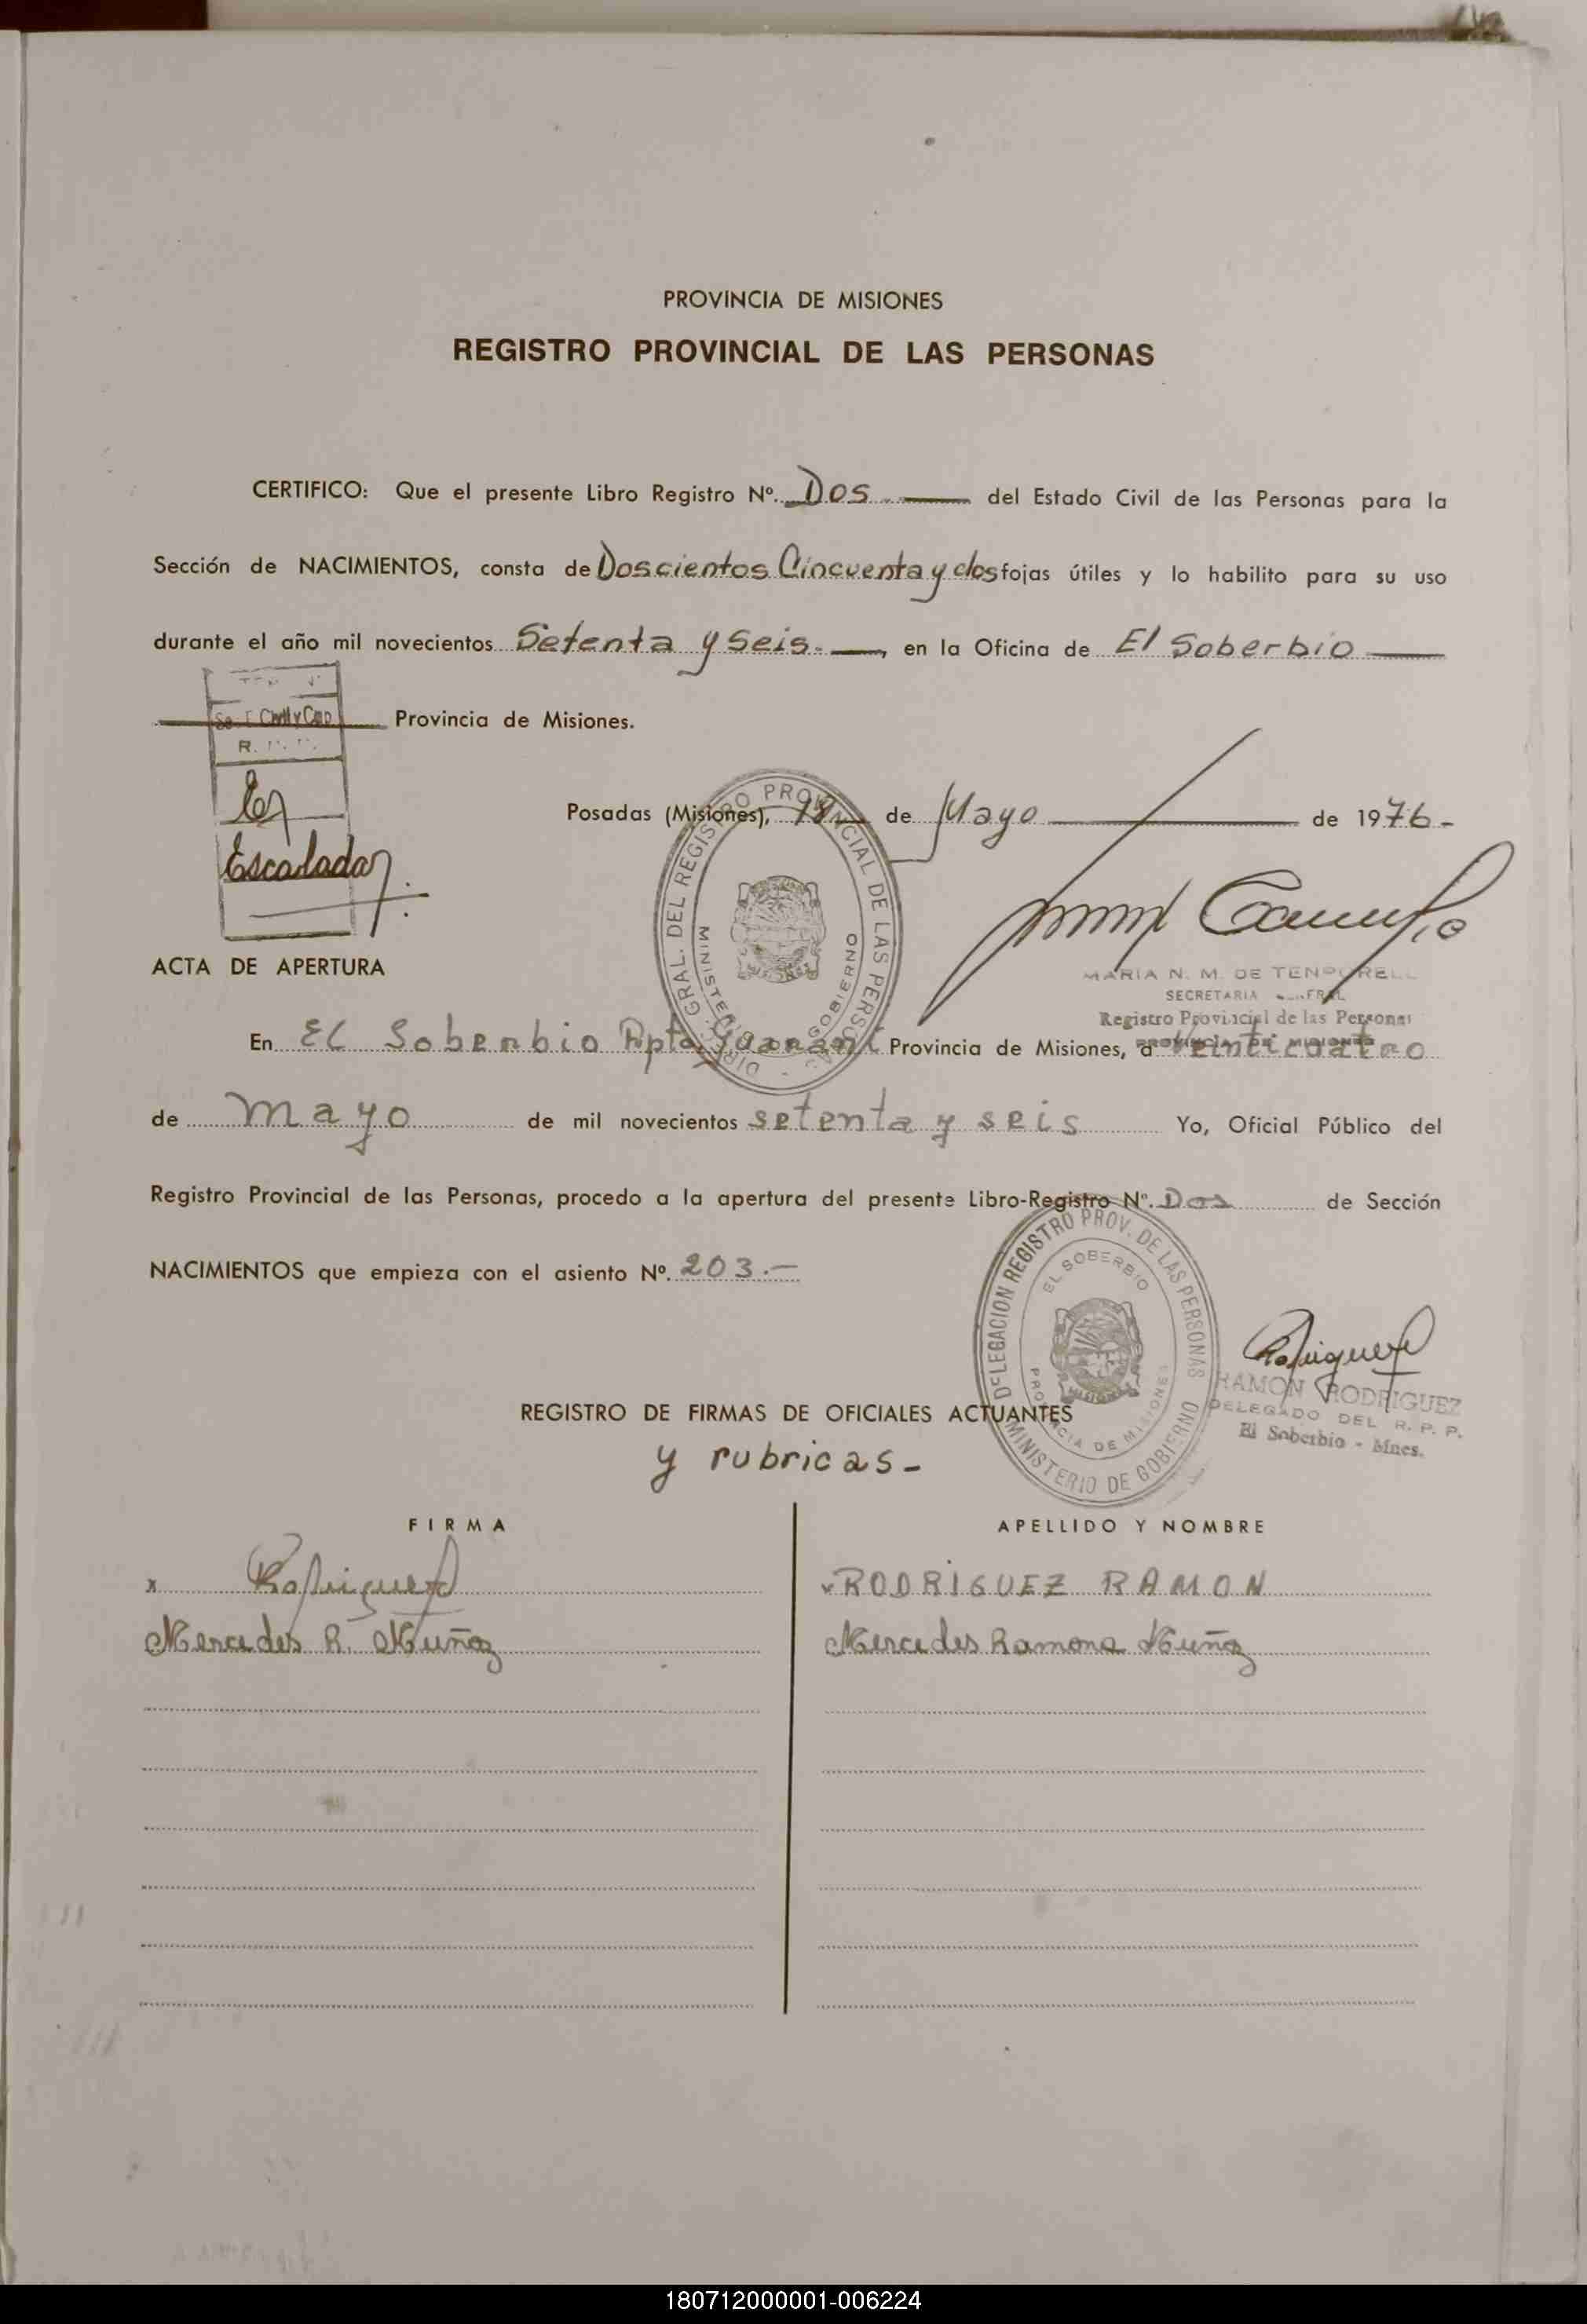 PROVINCIA DE MISIONES
REGISTRO PROVINCIAL DE LAS PERSONAS
CERTIFICO: Que el presente Libro Registro Nº. Dos del Estado Civil de las Personas para la
Sección de NACIMIENTOS, consta de Doscientos Cincuenta y dos fojas útiles y lo habilito para su uso
durante el año mil novecientos Setenta y Seis.—, en la Oficina de El Soberbio
Provincia de Misiones.
Escalada
Posadas (Misiones), de Mayo de 1976-
DIREC. GRAL. DEL REGISTRO PROVINCIAL DE LAS PERSONAS
MINISTERIO GOBIERNO
SECRETARIA
Registro Provincial de las Personas
PROVINCIA DE MISIONES
ACTA DE APERTURA
En El Soberbio Dpto Guaraní Provincia de Misiones, a Veinticuatro
de mayo de mil novecientos setenta y seis Yo, Oficial Público del
Registro Provincial de las Personas, procedo a la apertura del presente Libro-Registro Nº. Dos de Sección
NACIMIENTOS que empieza con el asiento Nº. 203.-
DELEGACION REGISTRO PROV. DE LAS PERSONAS
EL SOBERBIO
PROVINCIA DE MISIONES
MINISTERIO DE GOBIERNO
Rodriguez
RAMON RODRIGUEZ
DELEGADO DEL R. P. P.
El Soberbio - Mnes.
REGISTRO DE FIRMAS DE OFICIALES ACTUANTES
y rubricas-
FIRMA APELLIDO Y NOMBRE
x Rodriguez x RODRIGUEZ RAMON
Mercedes R. Muñoz Mercedes Ramona Muñoz
180712000001-006224